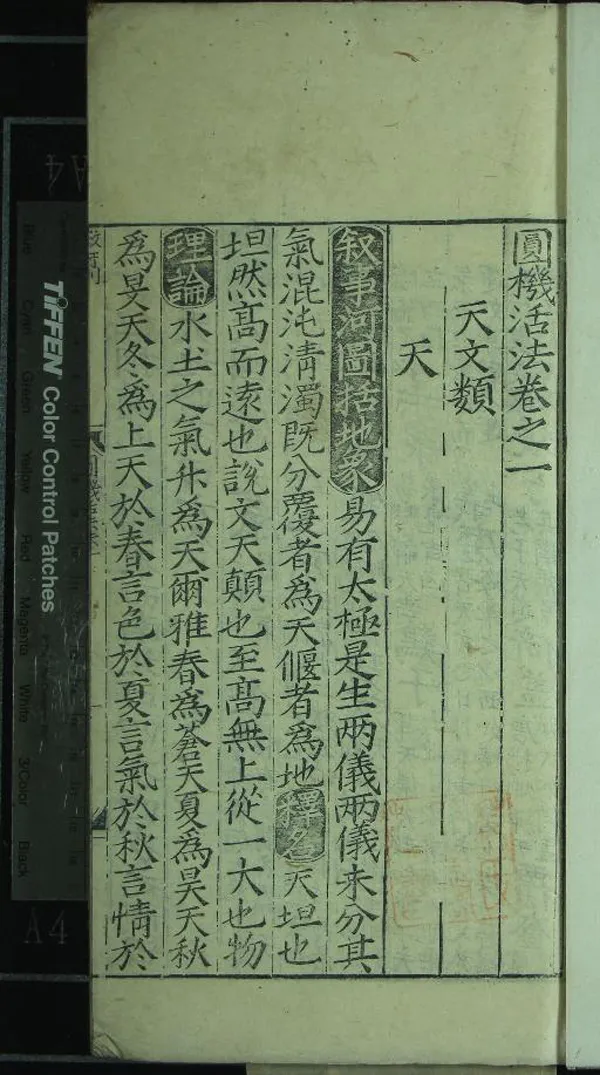 圓機活法卷之一
天文類
天
叙事河圖括地象易有太極是生兩儀兩儀未分其
氣混沌清濁旣分覆者爲天偃者爲地釋名天坦也
坦然髙而逺也說文天顚也至髙無上從一大也物
理論水土之氣升爲天爾雅春爲蒼天夏爲昊天秋
爲旻天冬爲上天於春言色於夏言氣於秋言情於
TIFFEN Color Control Patches
Blue
Cyan
Green
Yellow
Red
Magenta
White
3/Color
Black
A4
A4